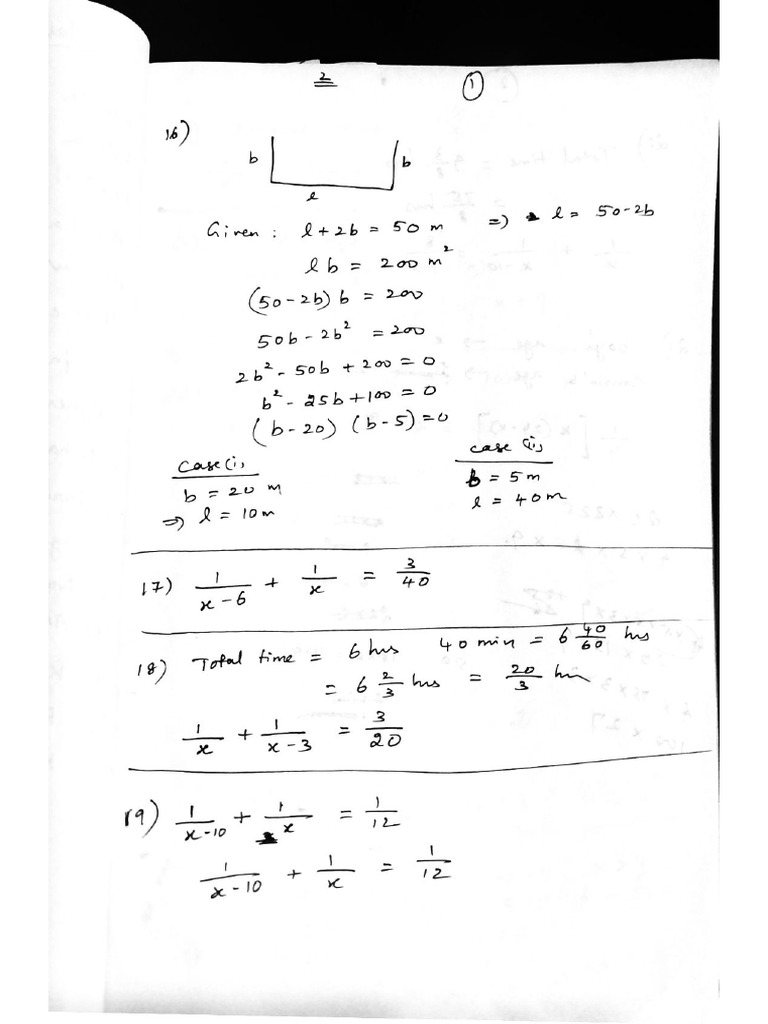 2 ①
16)
b b
l
Given : l + 2b = 50 m => l = 50-2b
lb = 200 m²
(50-2b) b = 200
50b - 2b² = 200
2b² - 50b + 200 = 0
b² - 25b + 100 = 0
(b-20) (b-5) = 0
Case (i) case (ii)
b = 20 m b = 5 m
=> l = 10m l = 40 m
17) 1/(x-6) + 1/x = 3/40
18) Total time = 6 hrs 40 min = 6 40/60 hrs
= 6 2/3 hrs = 20/3 hr
1/x + 1/(x-3) = 3/20
19) 1/(x-10) + 1/x = 1/12
1/(x-10) + 1/x = 1/12